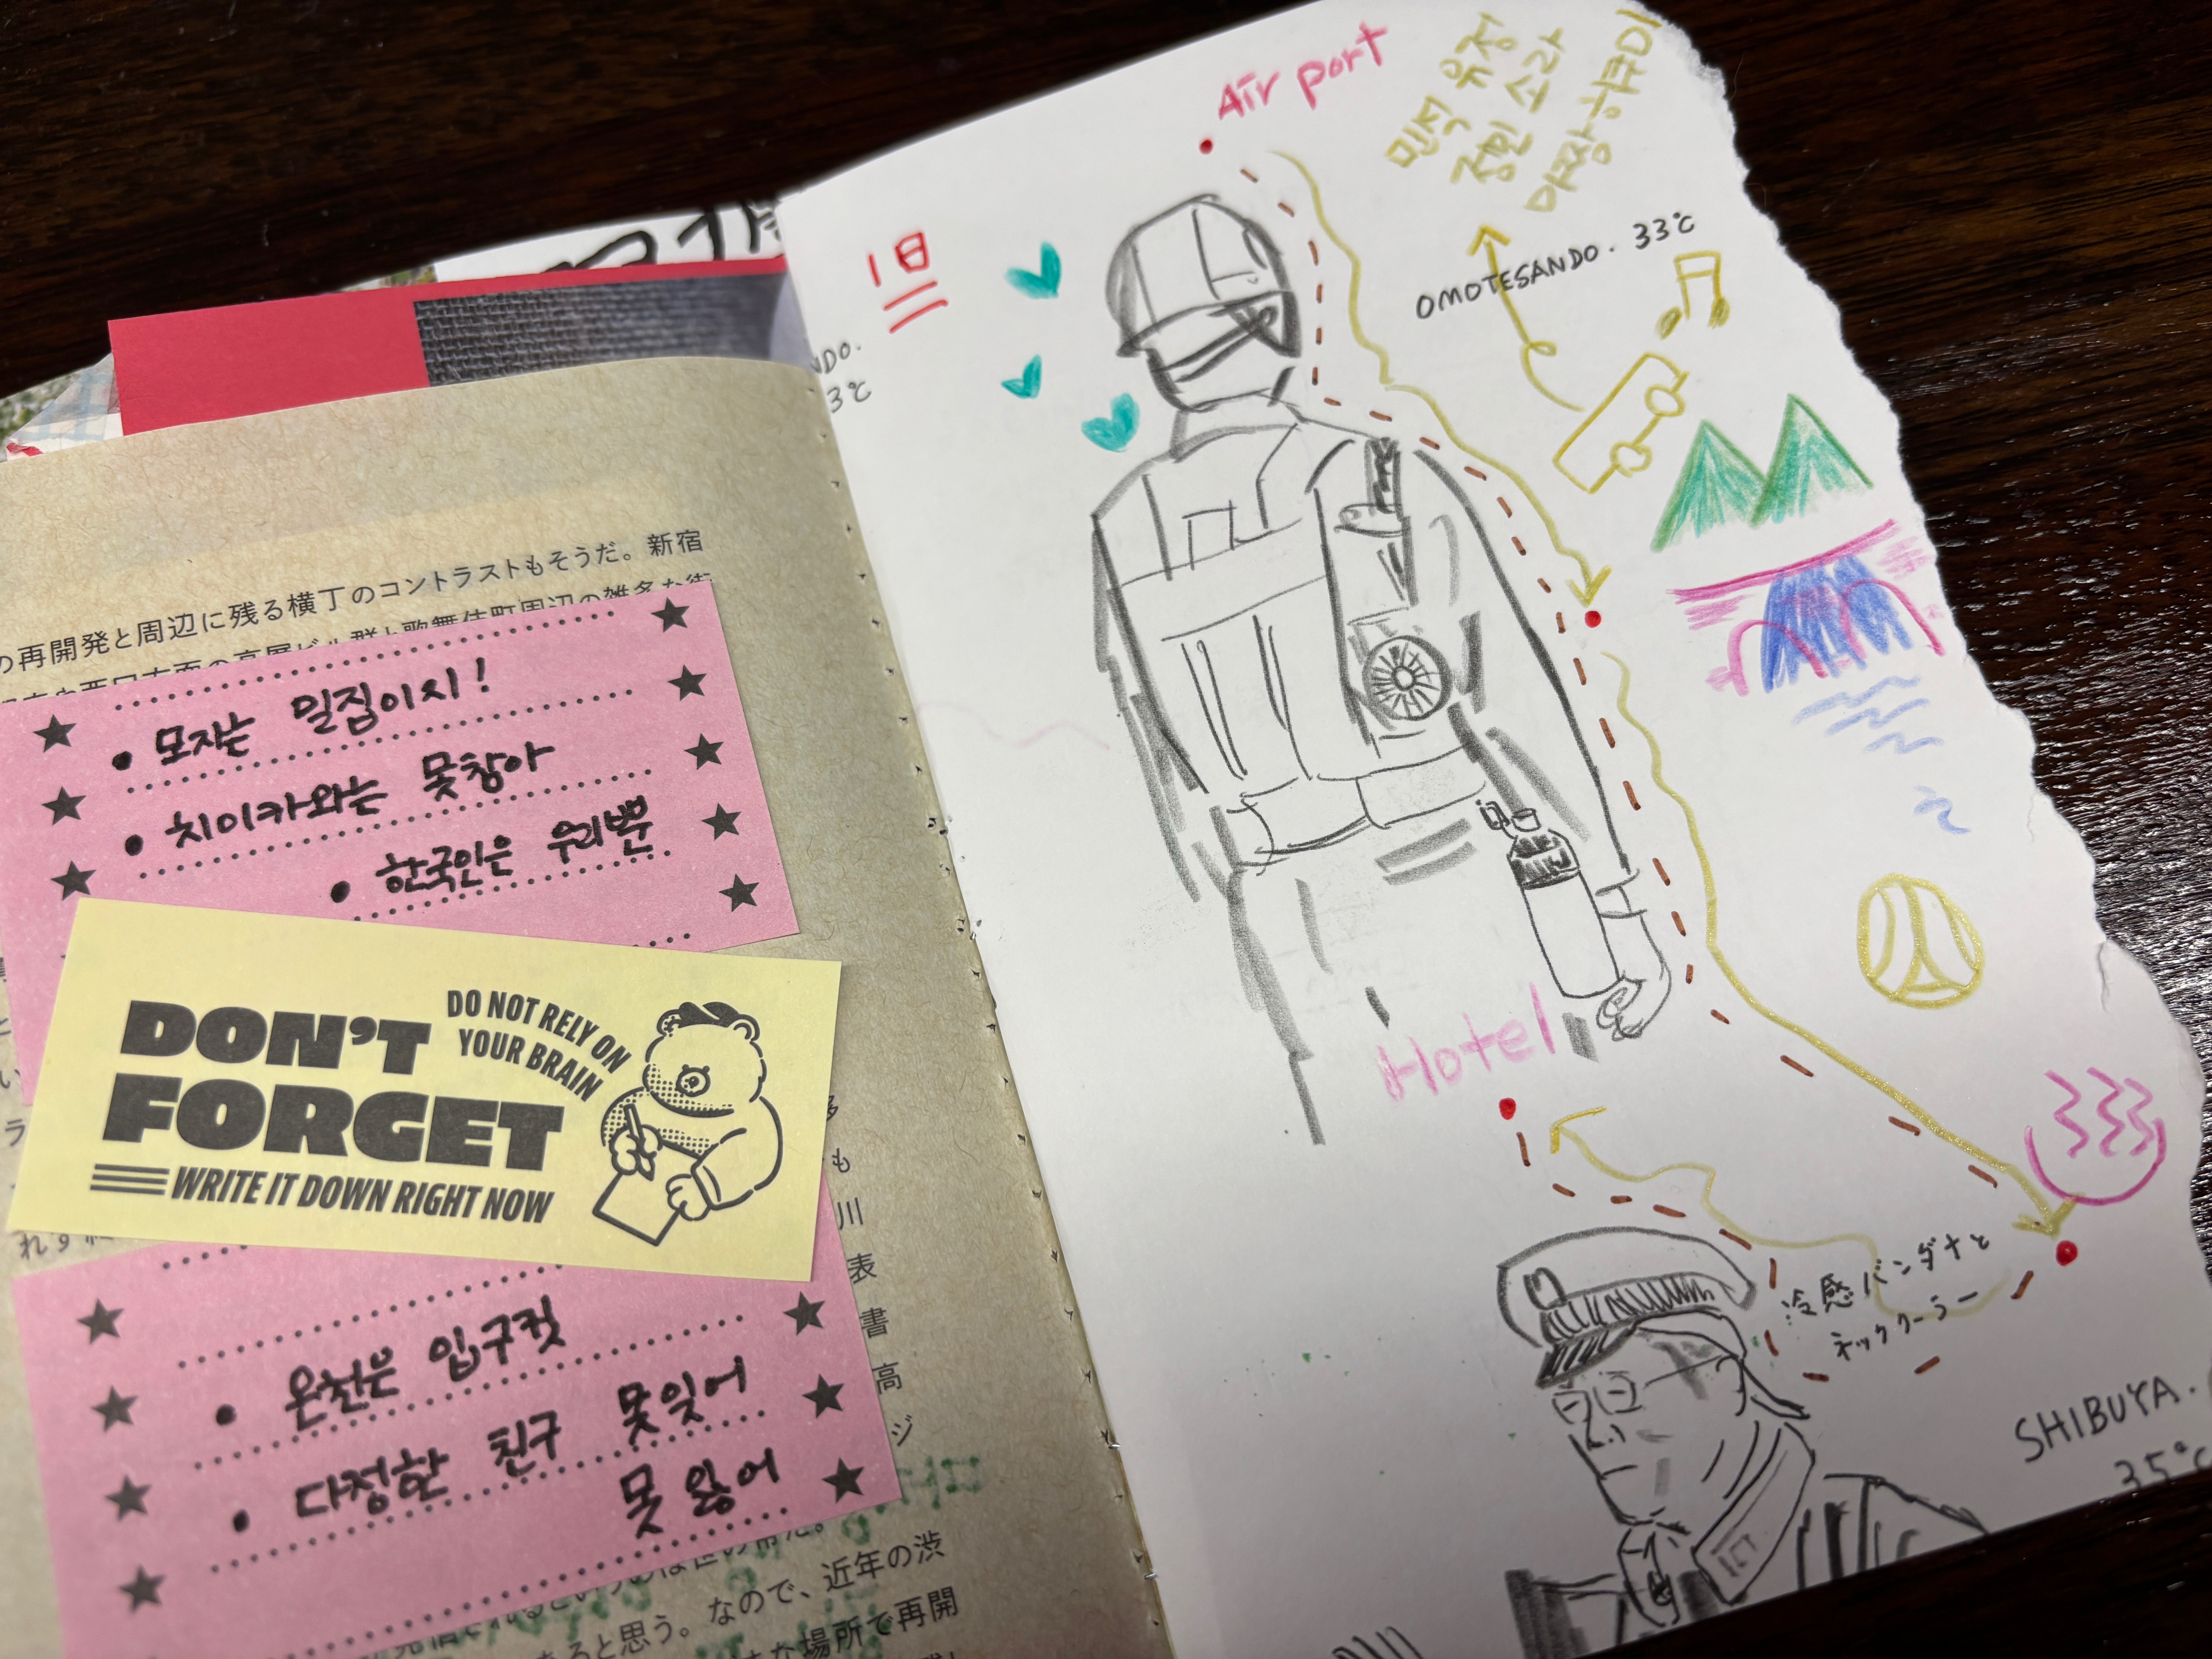 の再開発と周辺に残る横丁のコントラストもそうだ。新宿
• 모자는 밀짚이시!
• 치이카와는 못참아
• 한국인은 우리뿐
DON'T
FORGET
DO NOT RELY ON
YOUR BRAIN
WRITE IT DOWN RIGHT NOW
• 온천은 입구컷
• 다정한 친구 못잊어
못 잃어
川
表
書
高
ジ
あると思う。なので、近年の渋
な場所で再開
1日
NDO.
3℃
Air port
민석 유정
종민 소라
마짱 항규미
OMOTESANDO. 33℃
Hotel
冷感バンダナと
ネッククーラー
SHIBUYA.
35℃